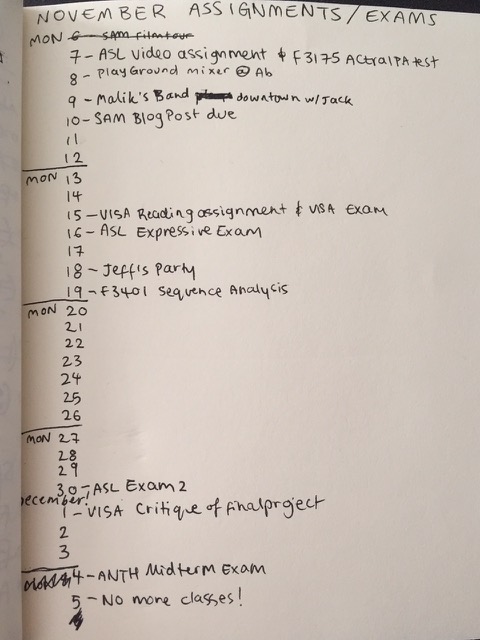 NOVEMBER ASSIGNMENTS/EXAMS
MON 6 - SAM filmtour
7 - ASL video assignment & F3175 ACtralPA test
8 - PlayGround mixer @ Ab
9 - Malik's Band downtown w/Jack
10 - SAM BlogPost due
11
12
MON 13
14
15 - VISA Reading assignment & VISA Exam
16 - ASL Expressive Exam
17
18 - Jeff's Party
19 - F3401 Sequence Analysis
MON 20
21
22
23
24
25
26
MON 27
28
29
30 - ASL Exam 2
December!
1 - VISA Critique of final project
2
3
4 - ANTH Midterm Exam
5 - No more classes!